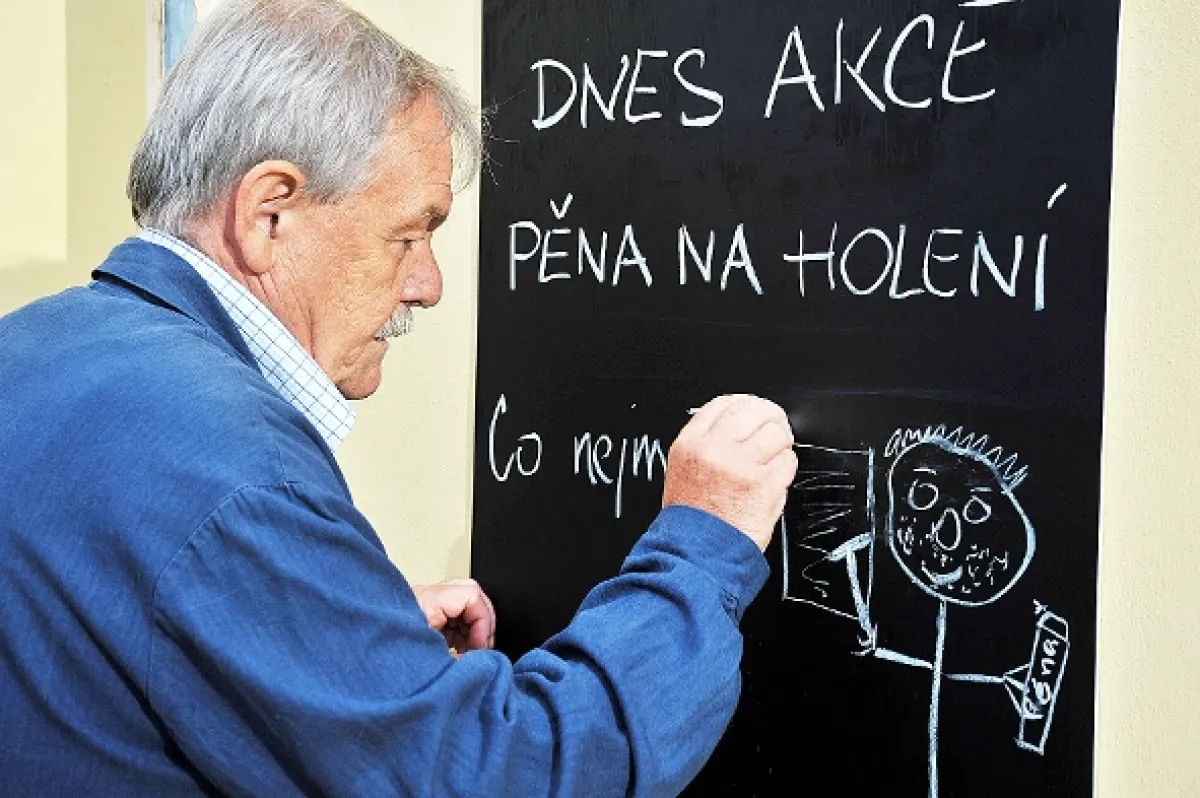 DNES AKCE
PĚNA NA HOLENÍ
Co nejm
Pěna